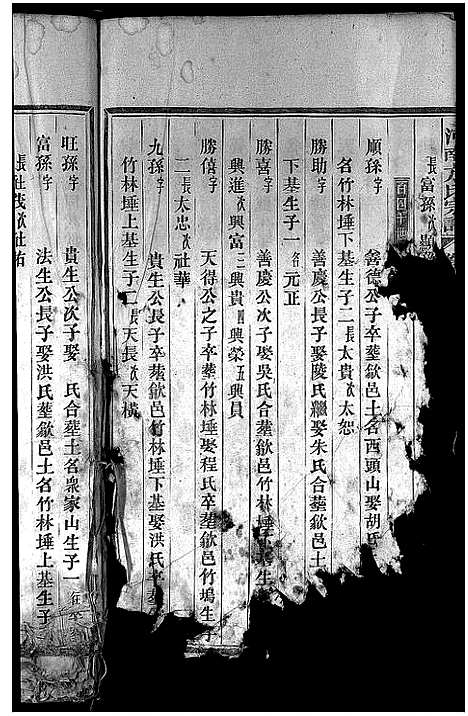 河南方氏宗譜
長富孫次
順孫字 善德公子卒葬歙邑土名西頭山娶胡氏
名竹林埵下基生子二長太貴次太恕
勝助字 善慶公長子娶陵氏繼娶朱氏合葬歙邑土
下基生子一名元正
勝喜字 善慶公次子娶吳氏合葬歙邑竹林埵
興進次興富三興貴四興榮五興員
勝僖字 天得公之子卒葬竹林埵娶程氏卒葬歙邑竹塢生子
二長太忠次社華
九孫字 貴生公長子卒葬歙邑竹林埵下基娶洪氏卒葬
竹林埵上基生子二長天長次天橫
旺孫字 貴生公次子娶 氏合葬土名眾家山生子一
富孫字 法生公長子娶洪氏葬歙邑土名竹林埵上基生子
長社茂次社祐